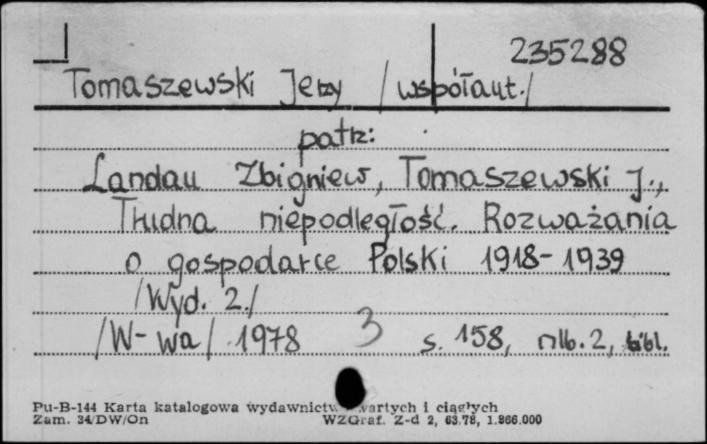 235288
Tomaszewski Jerzy /współaut./
patrz:
Landau Zbigniew, Tomaszewski J.,
Trudna niepodległość. Rozważania
o gospodarce Polski 1918-1939
/Wyd. 2./
/W-wa/ 1978 3 s. 158, nlb. 2, bibl.
Pu-B-144 Karta katalogowa wydawnictw zwartych i ciągłych
Zam. 34/DW/On WZGraf. Z-d 2, 63.78, 1.866.000